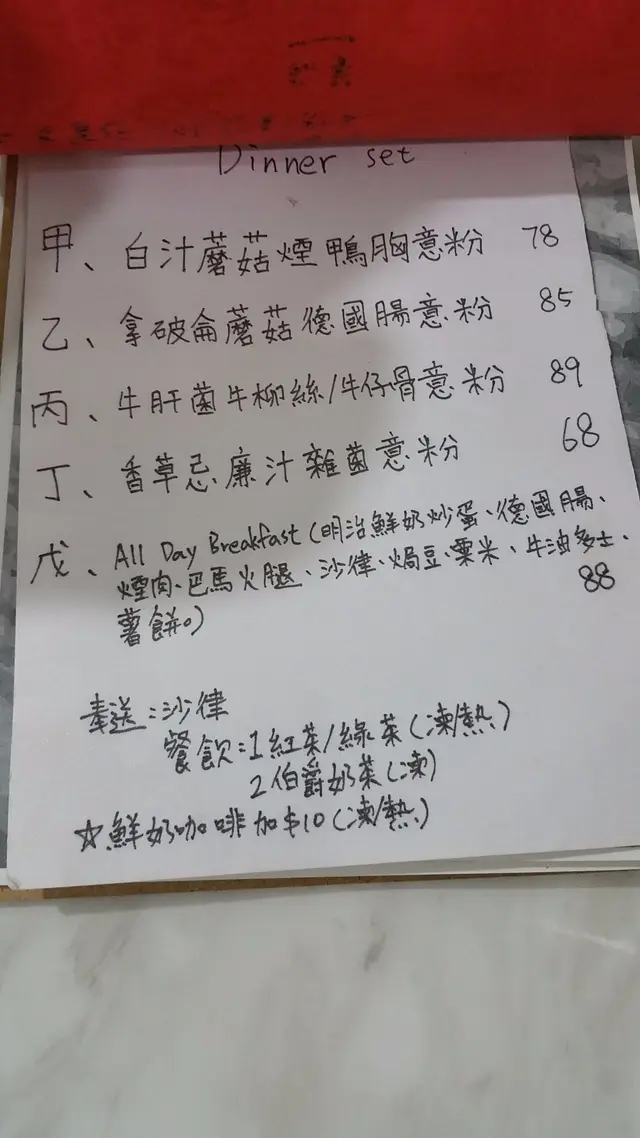 Dinner set
甲、白汁蘑菇煙鴨胸意粉 78
乙、拿破侖蘑菇德國腸意粉 85
丙、牛肝菌牛柳絲/牛仔骨意粉 89
丁、香草忌廉汁雜菌意粉 68
戊、All Day Breakfast(明治鮮奶炒蛋、德國腸、
煙肉、巴馬火腿、沙律、焗豆、粟米、牛油多士、
薯餅。) 88
奉送:沙律
餐飲:1紅茶/綠茶(凍/熱)
2伯爵奶茶(凍)
☆鮮奶咖啡加$10(凍/熱)